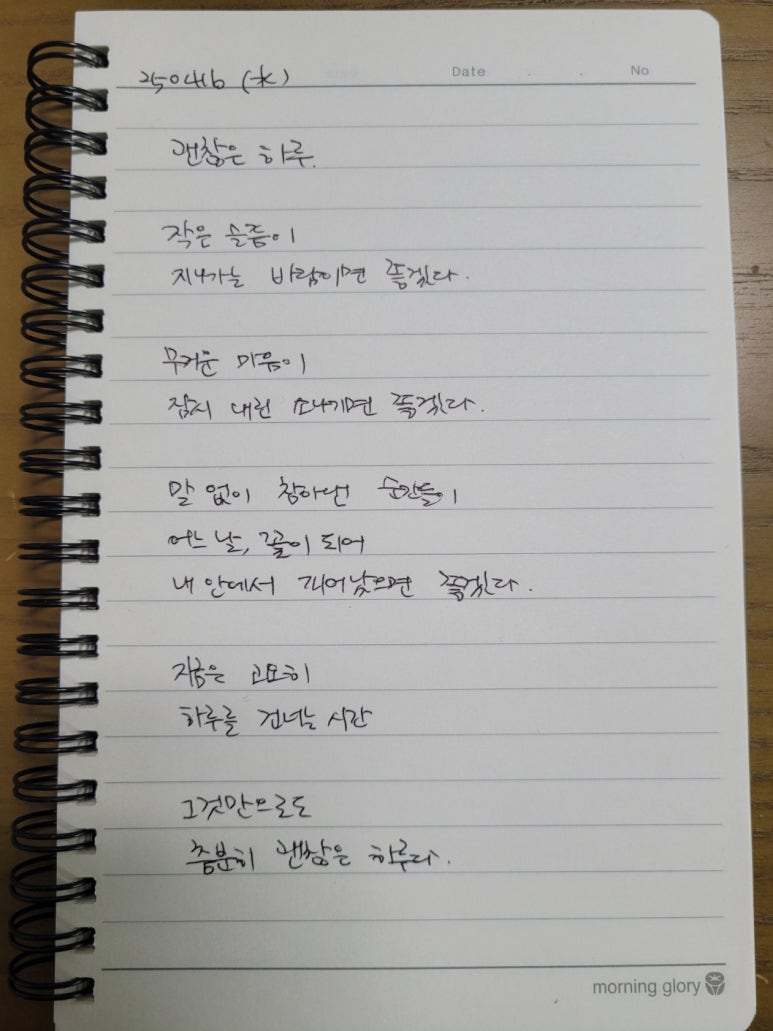 250416 (水)
Date . . No
괜찮은 하루.
작은 슬픔이
지나가는 바람이면 좋겠다.
무거운 마음이
잠시 내린 소나기면 좋겠다.
말 없이 참아낸 순간들이
어느 날, 꽃이 되어
내 안에서 피어났으면 좋겠다.
지금은 고요히
하루를 건너는 시간
그것만으로도
충분히 괜찮은 하루다.
morning glory